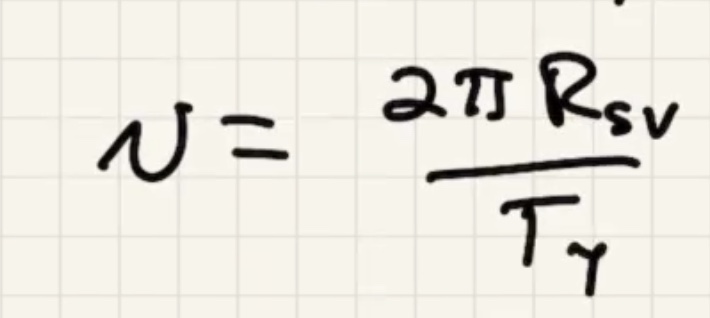 v = 2π R_sv / T_y